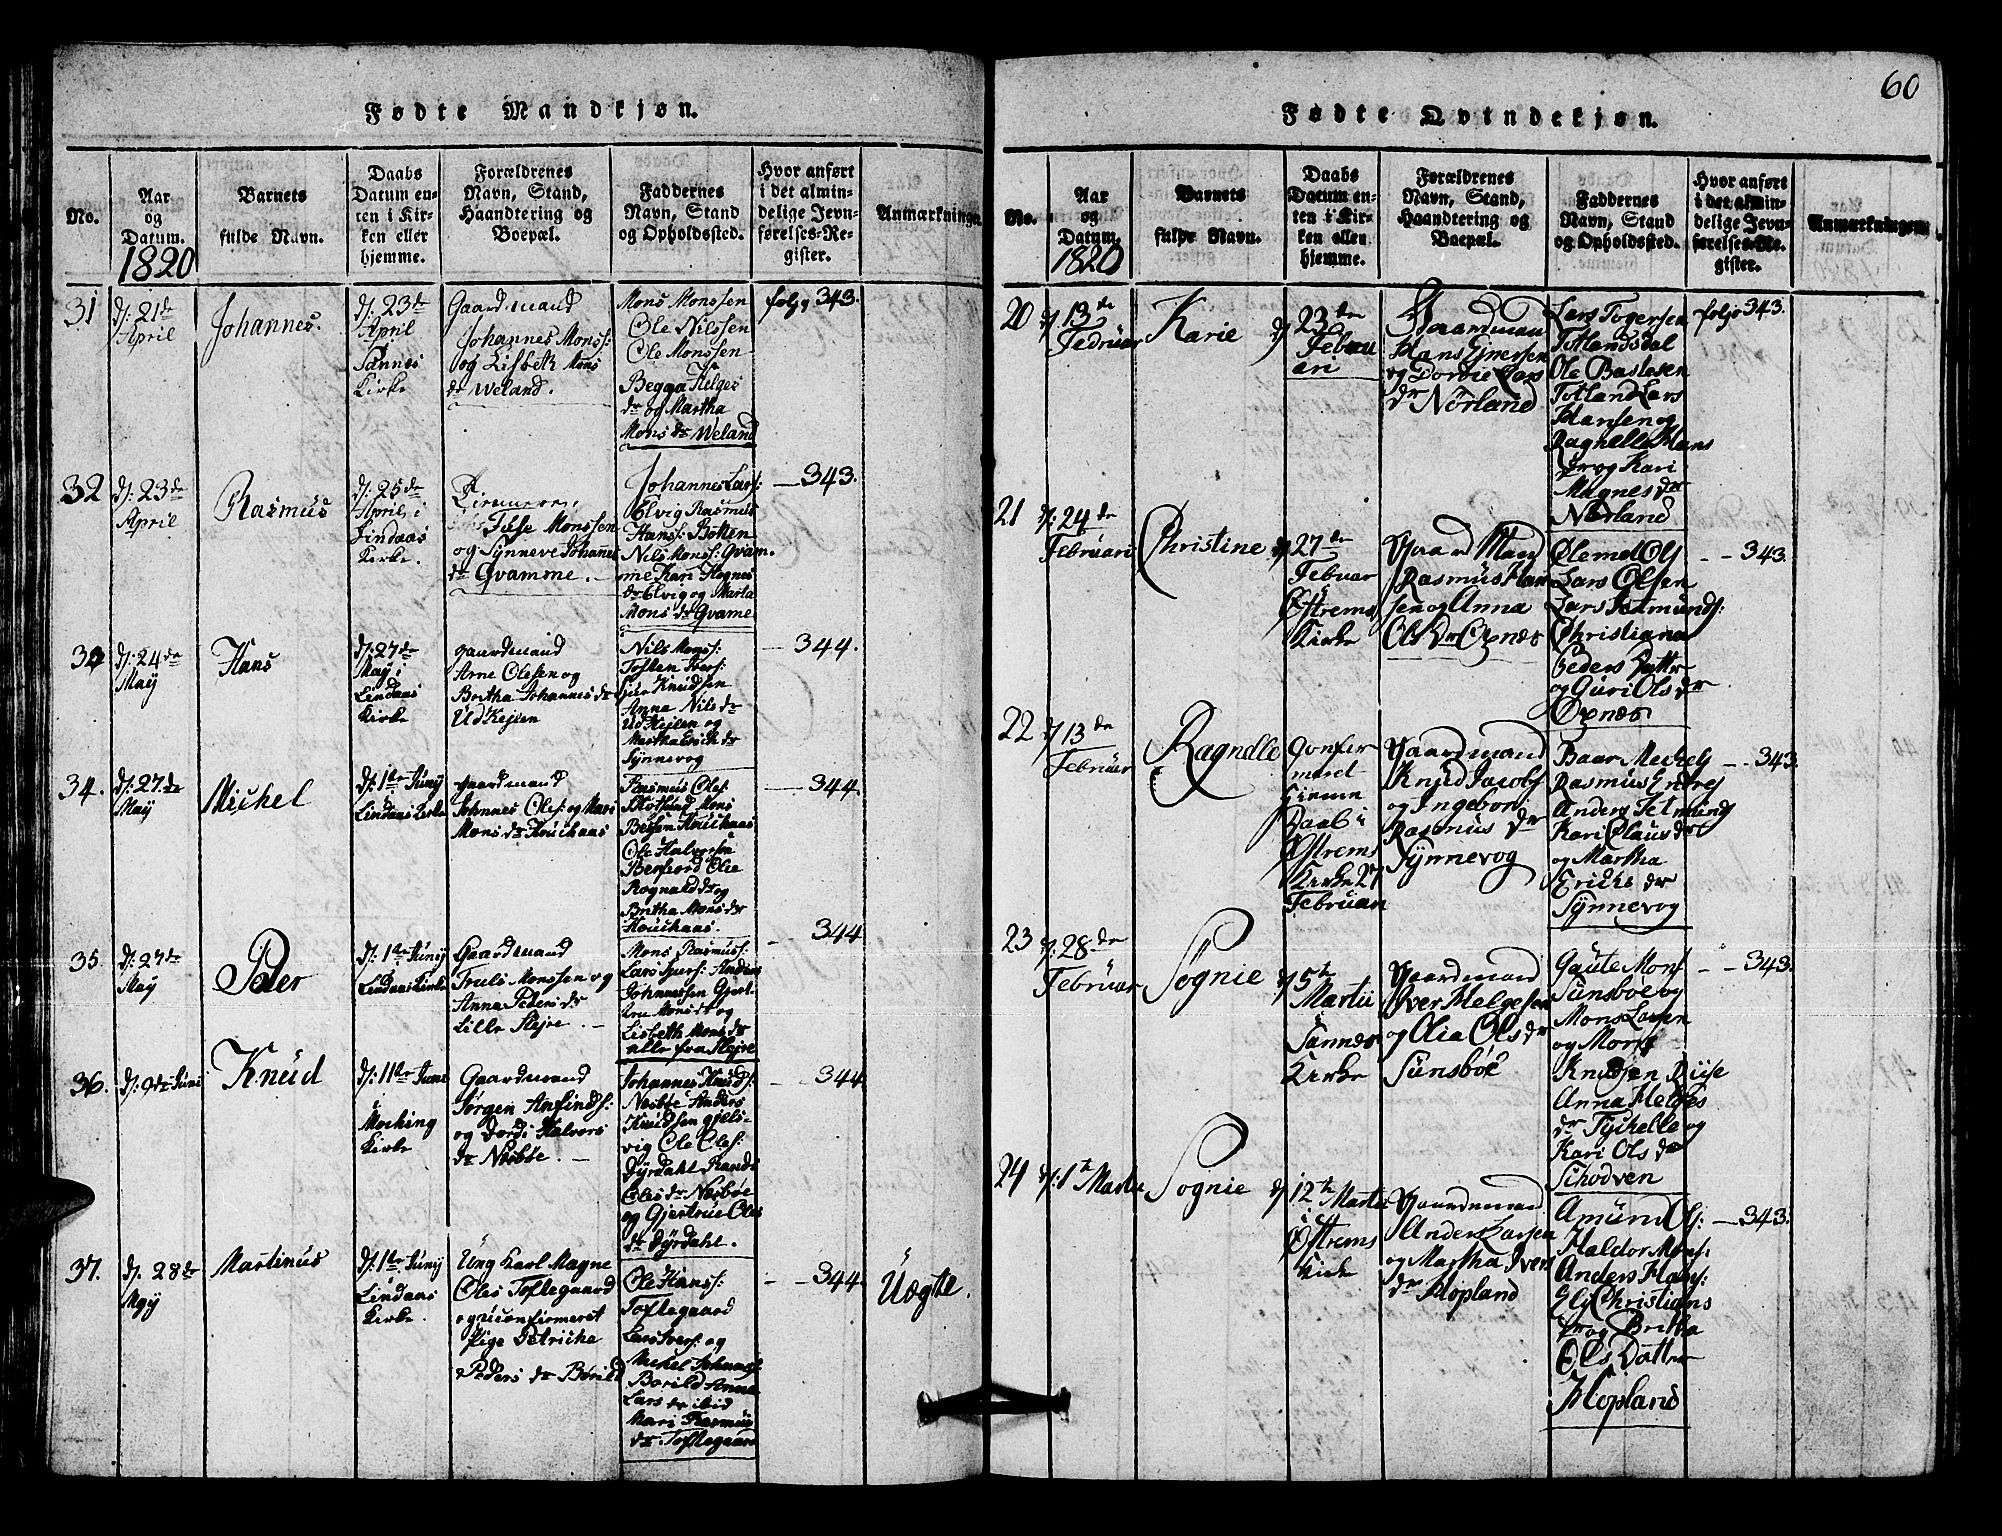 60
Fødte Mandkjøn.
No.
Aar
og
Datum.
1820
Barnets
fulde Navn.
Daabs
Datum en-
ten i Kir-
ken eller
hjemme.
Forældrenes
Navn, Stand,
Haandtering og
Boepæl.
Faddernes
Navn, Stand
og Opholdssted.
Hvor anført
i det almin-
delige Jevn-
førelses-Re-
gister.
Anmærkninger
31
d: 21de
April
Johannes.
d: 23de
April
Sannes
Kirke
Gaardmand
Johannes Monss:
og Lisbeth Mons
dr Weland.
Mons Monssen
Ole Nilssen
Ole Monssen
Begga Helges
dr og Martha
Mons dr Weland
folg 343.
32
d: 23de
April
Rasmus
d: 25de
April i
Lindaas
Kirke.
Monssen
og Synneve Johanes
dr Qvamme.
Johannes Lars:
Elvig Rasmus
Hanss: Botten
Nils Monss: Qvam
me Kari Hognes
dr Elvig og Marta
Mons dr Qvame
343.
d: 24de
May
Hans
d: 27de
May i
Lindaas
Kirke
gaardmand
Arne Olesen og
Britha Johannes dr
Ud Kejlen
Nils Monss:
Toften Ivers:
Knudsen
Anna Nils dr
Ud Kejlen og
Martha Erich dr
Synnevog
344.
34.
d: 27de
May
Michel
d: 1te Juny
Lindaas Kirke
gaardmand
Johannes Oles: og Mari
Mons dr Houchaas
Rasmus Oles:
Mons
Houchaas
Ole Halvorsen
Bersfiord Olie
Rognald dr og
Britha Mons dr
Houchaas.
344.
35.
d: 27de
May
Peder
d: 1te Juny
Lindaas Kirke
Gaardmand
Truls Monssen og
Anna Peders dr
Lille Slejre.
Mons Rasmuss:
Lars Anders
Johannessen Gjert-
rue Mons dr og
Lisbeth Mons dr
alle fra Slejre
344
36.
d: 9de Juni
Knud
d: 11te Juni
i
Mocking
Kirke
Gaardmand
Jørgen Anfinds:
og Dordi Halvors
dr Nesbøe.
Johannes Knuds:
Nesbøe Anders
Knudsen gjels-
vig Ole Oles:
Dyrdahl Randi
Oles dr Nesbøe
og Gjertrue Oles
dr Dyrdahl.
344
37.
d: 28de
May
Martinus
d: 1te Juny
Lindaas
Kirke.
Ung Karl Magne
Oles Toftegaard
og uconfirmeret
Pige Petricha
Peders dr Børild
Ole Hanss:
Toftegaard
Lars Ivers: og
Michel Johanness:
Borild Anna
Lars dr ibid
Mari Rasmus
dr Toftegaard
344
Uægte.
Fødte Qvindekjøn.
No.
Aar
og
Datum.
1820
Barnets
fulde Navn.
Daabs
Datum en-
ten i Kir-
ken eller
hjemme.
Forældrenes
Navn, Stand,
Haandtering og
Boepæl.
Faddernes
Navn, Stand
og Opholdssted.
Hvor anført
i det almin-
delige Jevn-
førelses-Re-
gister.
Anmærkninger
20
d 13de
Februar
Karie
d 23de
Febru
ari
Gaardman
Hans Ejnersen
og Dordie Lars
dr Nørland
Lars Togersen
Totlandsdal
Ole Bastesen
Totland Lars
Hansen og
Ragnelle Hans
dr og Kari
Magnes dr
Nørland
foljo 343.
21
d: 24de
Februari
Christine
d 27de
Februar
Østrems
Kirke
Gaard Mand
Rasmus Han
sen og Anna
Ols Dr Oxnæs
Ølemel Ols
Lars Olsen
Lars Setmunds:
Christiana
Peders Dattr
og Guri Ols dr
Oxnæs
343.
22
d 13de
Februar
Ragnelle
Confer
meret
Hieme
Daab i
Østrems
Kirke 27
Februari
Gaardmand
Knud Jacobs
og Ingebori
Rasmus dr
Synnevog
Baar Michels
Rasmus Endres
Anders Setmund
Kari Claus dr
og Martha
Erichs dr
Synnevog
343.
23
d: 28de
Februar
Sognie
d 5te
Martii
Sannæs
Kirke
Gaardmand
Iver Helgesen
og Olia Ols dr
Sunsbøe
Gaute Mons
Sunsbøe og
Mons Larsen
og Mons
Knudsen Riise
Anna Helges
dr Tyckelle og
Kari Ols dr
Schodven
343.
24
d: 1te Martii
Sognie
d 12te Martii
i
Østrems
Kirke
Gaardmand
Anders Larsen
og Martha Ivers
dr Hopland
Amund Ols:
Haldor Mons:
Anders Hans:
Elj Christians
dr og Britha
Ols Datter
Hopland
343.